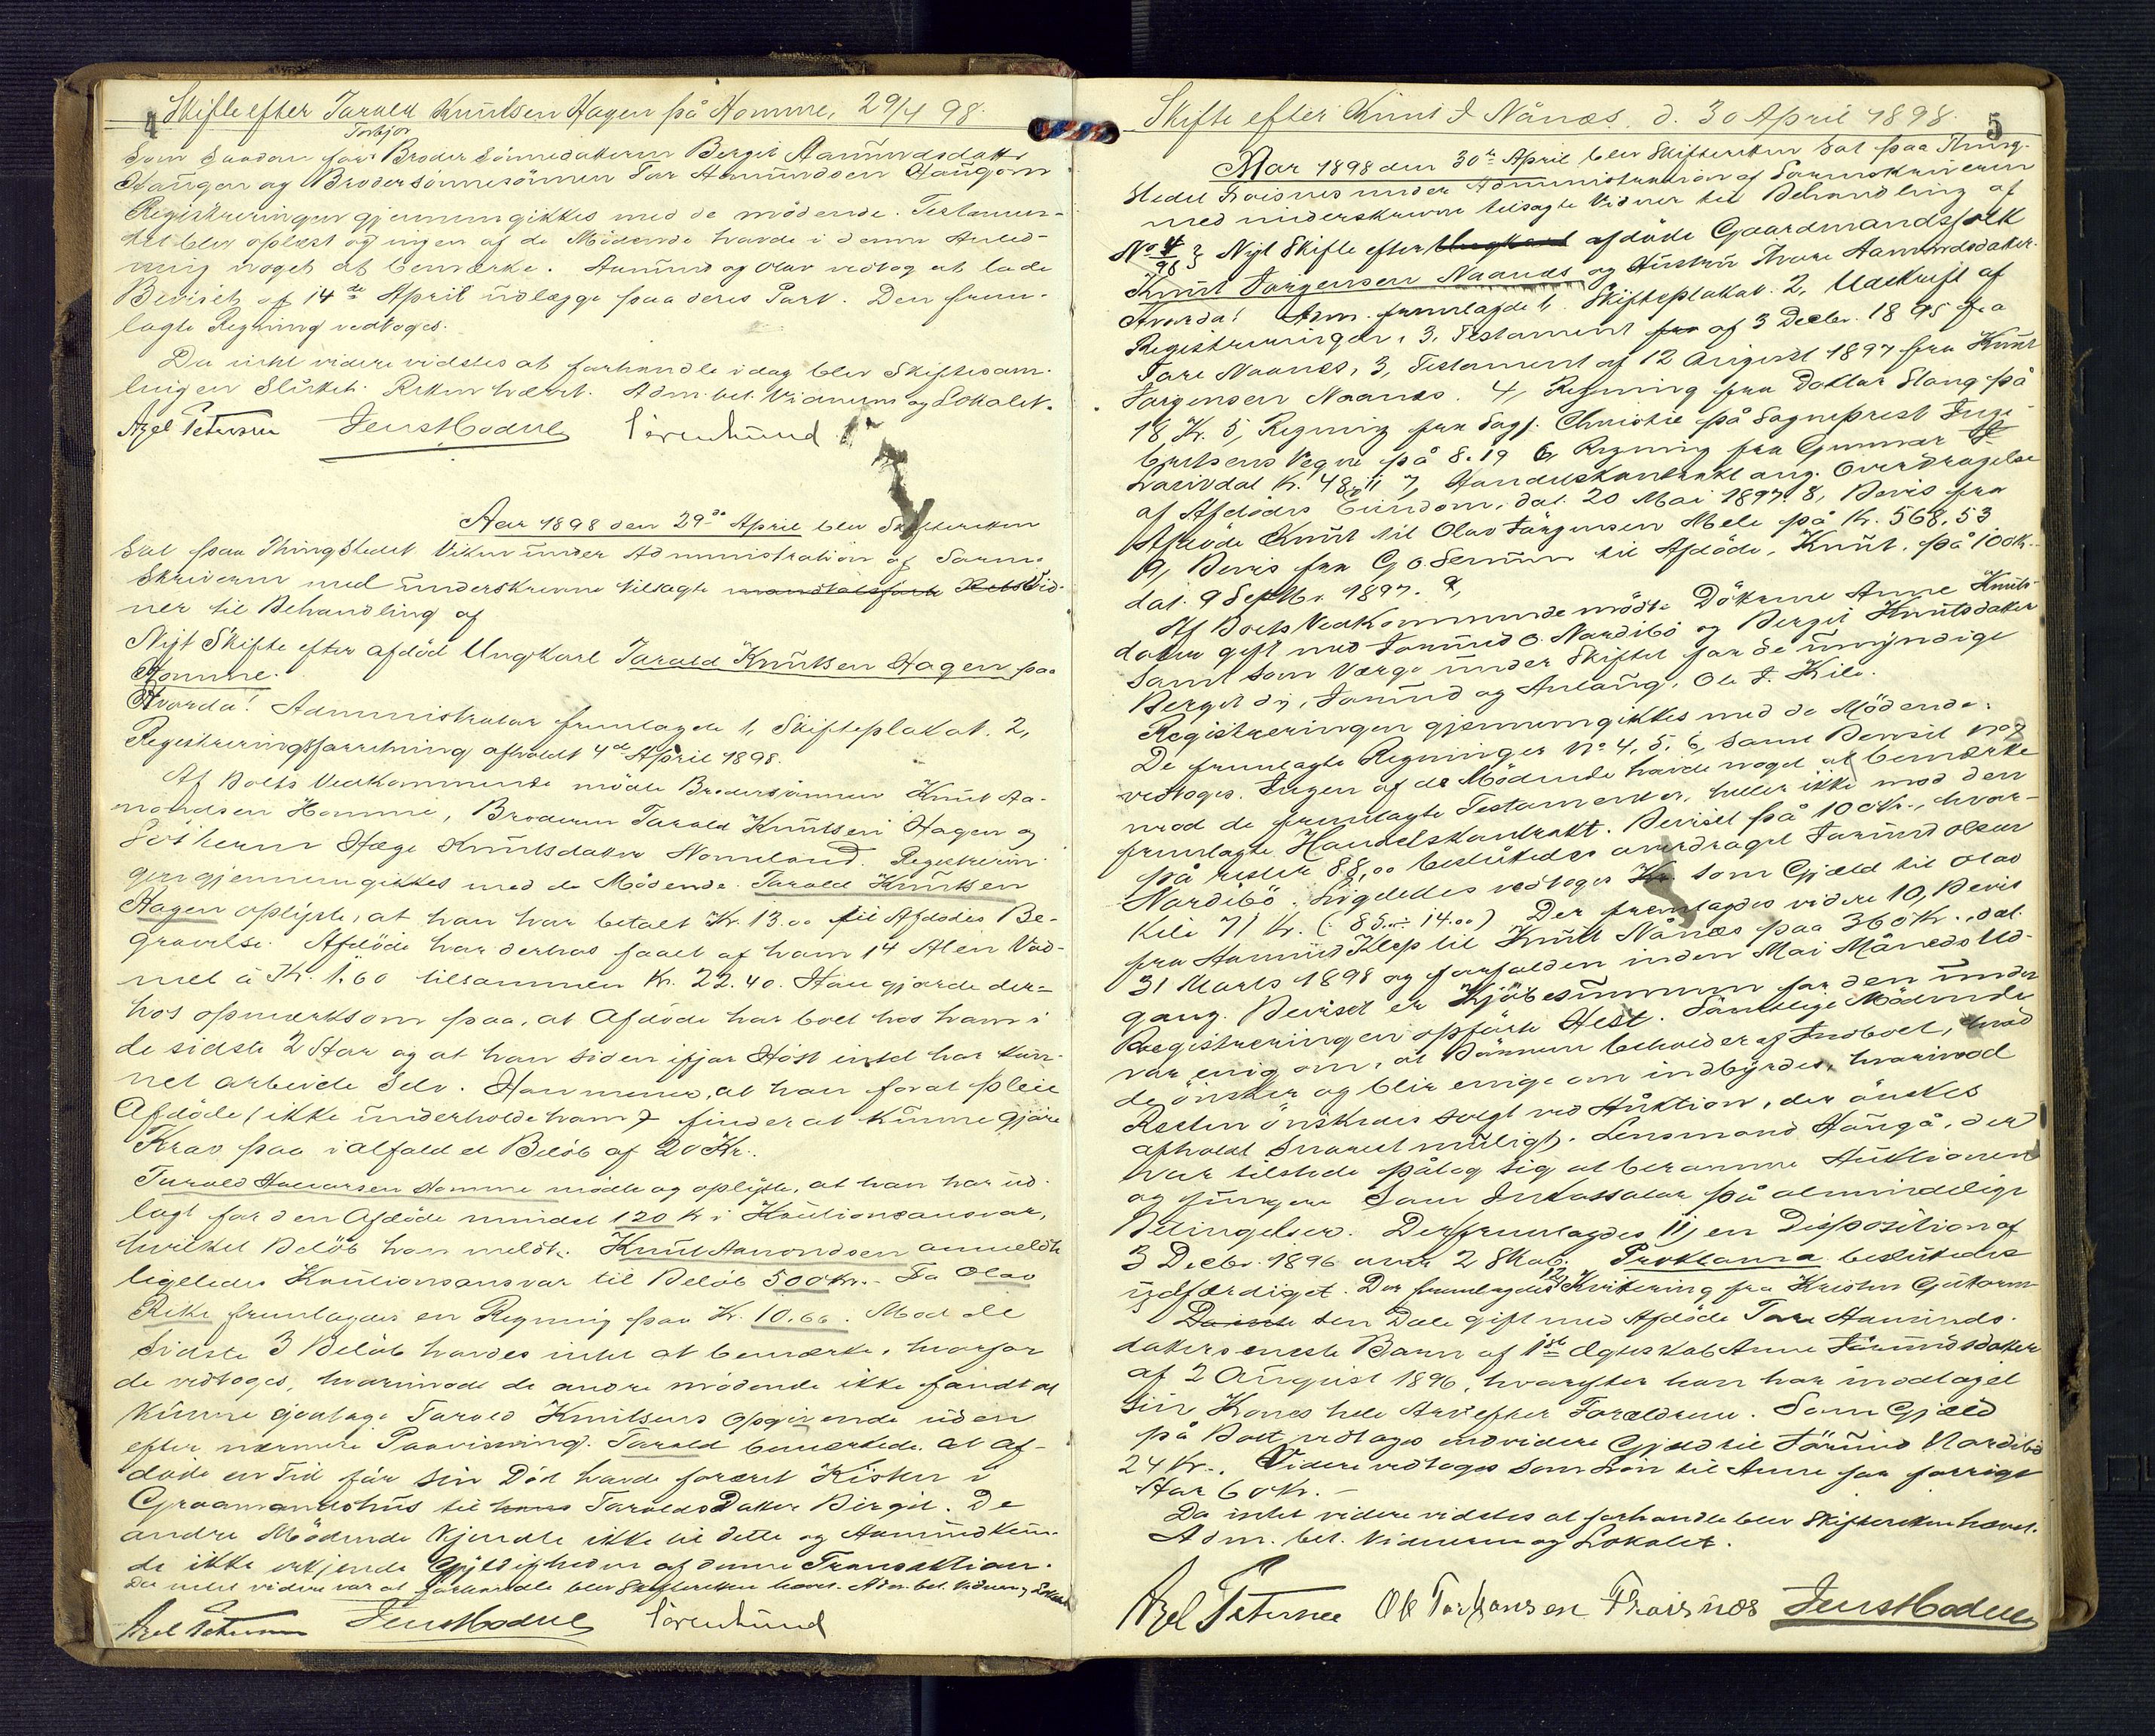 4 Skifte efter Tarald Knutsen Hagen på Homme, 29/4 98.
Torbjør
Som saadan for Broder Sønnedatteren Bergit Aamundsdatter
Haugen og Brodersønnesønnen Tor Aamundsen Haugom
Registreringen gjennemgikkes med de mødende. Testamen-
tet blev oplæst og ingen af de Mødende havde i denne Anled-
ning noget at bemærke. Aamund og Olav vedtog at lade
Beviset af 14de April udlægge paa deres Part. Den frem-
lagte Regning vedtoges.
Da intet videre vidstes at forhandle idag blev Skiftesam-
lingen Sluttet. Retten hævet. Adm. bet. Vidnerne og Lokalet.
Axel Petersen Jens Hodne
Aar 1898 den 29de April blev Skifteretten
Sat paa Thingstedet Viken under Administration af Soren-
Skriveren med underskrevne tilsagte mandtalsførte RetsVid-
ner til Behandling af
Nyt Skifte efter afdød Ungkarl Tarald Knutsen Hagen paa
Homme.
Hvorda! Administrator fremlagde 1, Skifteplakat. 2,
Registreringsforretning afholdt 4de April 1898.
Af Boets Vedkommende mødte Brodersønnen Knut Aa-
mondsen Homme, Broderen Tarald Knutsen Hagen og
Søsteren Hæge Knutsdatter Homeland. Registrerin-
gen gjennemgikkes med de Mødende. Tarald Knutsen
Hagen oplyste, at han har betalt Kr. 13.00 til Afdødes Be-
gravelse. Afdøde har derhos faaet af ham 14 Alen Vad-
mel à Kr. 1.60 tilsammen Kr. 22.40. Han gjorde der-
hos opmærksom paa, at Afdøde har boet hos ham i
de sidste 2 Aar og at han siden ifjor Høst intet har kun-
net arbeide selv. Han mener, at han for at pleie
Afdøde (ikke underholde ham) finder at kunne gjøre
Krav paa ialfald et Beløb af 20 Kr.
Tarald Halvorsen Homme mødte og oplyste, at han har ud-
lagt for den Afdøde mindst 120 Kr i Kautionsansvar,
hvilket Beløb han meldte. Knut Aamondsen anmeldte
ligeledes Kautionsansvar til Beløb 500 Kr. - Fa Olav
Rike fremlagdes en Regning paa Kr. 10.66. Mod de
Sidste 3 Beløb havdes intet at bemærke, hvorfor
de vedtoges, hvorimod de andre mødende ikke fandt at
kunne godtage Tarald Knutsens Opgivende uden
efter nærmere Paavisning. Tarald bemærkede at Af-
døde en Tid før sin Død havde foræret Kisten i
Graamandshus til hans Taralds Datter Birgit. De
andre Mødende kjendte ikke til dette og Aamund kun-
de ikke erkjende Gyldigheden af denne Transaktion.
Da intet videre var at forhandle blev Skifteretten hævet. Adm. bet. Vidner og Lokalet
Axel Petersen Jens Hodne
Skifte efter Knut J Nånæs. d. 30 April 1898. 5
Aar 1898 den 30te April blev Skifteretten Sat paa Thing-
Stedet Froisnes under Administration af Sorenskriveren
med underskrevne tilsagte Vidner til Behandling af
No 4/98 } Nyt Skifte efter Ungkarl afdøde Gaardmandsfolk
Knut Jørgensen Naanæs og Hustru Thore Aamundsdatter.
Hvorda! Adm. fremlagde 1. Skifteplakat. 2, Udskrift af
Registreringen, 3, Testament fra af 3 Decbr. 1895 fra
Tore Naanæs, 3, Testament af 12 August 1897 fra Knut
Jørgensen Naanæs. 4, Regning fra Doktor Stang på
18 Kr. 5, Regning fra Sagf. Christie på Sogneprest Inge-
brigtsens Vegne på 8.19 6, Regning fra Gunnar
Kr. 48,11 7, Handelskontrakt ang. Overdragelse
af Afdødes Eiendom, dat. 20 Mai 1897. 8, Bevis fra
Afdøde Knut til Olav Jørgensen Mele på Kr. 568,53
9, Bevis fra G. O. til Afdøde, Knut, på 100 Kr.
dat. 9 Septbr 1897.
Af Boets Vedkommende mødte Døtrene Anne Knuts-
datter gift med Jørund O. Nordibø og Bergit Knutsdatter
samt som Værge under Skiftet for de umyndige
Bergit dy, Jørund og Anlaug, Ole T. Kile.
Registreringen gjennemgikkes med de Mødende.
De fremlagte Regninger No 4, 5, 6, samt Beviset No 8
vedtoges. Ingen af de Mødende havde noget at bemærke
mod de fremlagte Testamenter, heller ikke mod den
fremlagte Handelskontrakt. Beviset på 100 Kr., hvor-
på rester 88,00 besluttedes overdraget Jørund Olsen
Nordibø. Ligeledes vedtoges Kr. som Gjæld til Olav
Kile 71 Kr. (: 85 ÷ 14.00) Der fremlagdes videre 10, Bevis
fra Aamund Klep til Knut Nånæs paa 360 Kr. dat.
31 Marts 1898 og forfalden inden Mai Måneds Ud-
gang. Beviset er Kjøbesummen for den under
Registreringen opførte Hest. Samtlige Mødende
var enig om, at Børnene beholder af Indboet, hvad
de ønsker og blir enige om indbyrdes, hvorimod
Resten ønskedes solgt ved Auktion, der ønskes
afholdt snarest muligt. Lensmand Haugå, der
var tilstede påtog sig at beramme Auktionen
og fungere som Inkassator på almindelige
Betingelser. Der fremlagdes 11, en Disposition af
3 Decbr. 1896 over 2 Skab. Proklama besluttedes
udfærdiget. Der fremlagdes 12, Kvittering fra Kristen Gutorm-
Da inte sen Dale gift med Afdøde Tore Aamunds-
datters eneste Barn af 1ste Ægteskab Anne Jørundsdatter
af 2 August 1896, hvorefter han har modtaget
sin Kones hele Arv efter Forældrene. Som Gjæld
på Boet vedtages endvidere Gjæld til Jørund Nordibø
24 Kr. Videre vedtoges som Løn til Anne for forrige
Aar 60 Kr. -
Da intet videre vidstes at forhandle blev Skifteretten hævet.
Adm. bet. Vidnerne og Lokalet.
Axel Petersen Ole Torjussen Froisnæs Jens Hodne